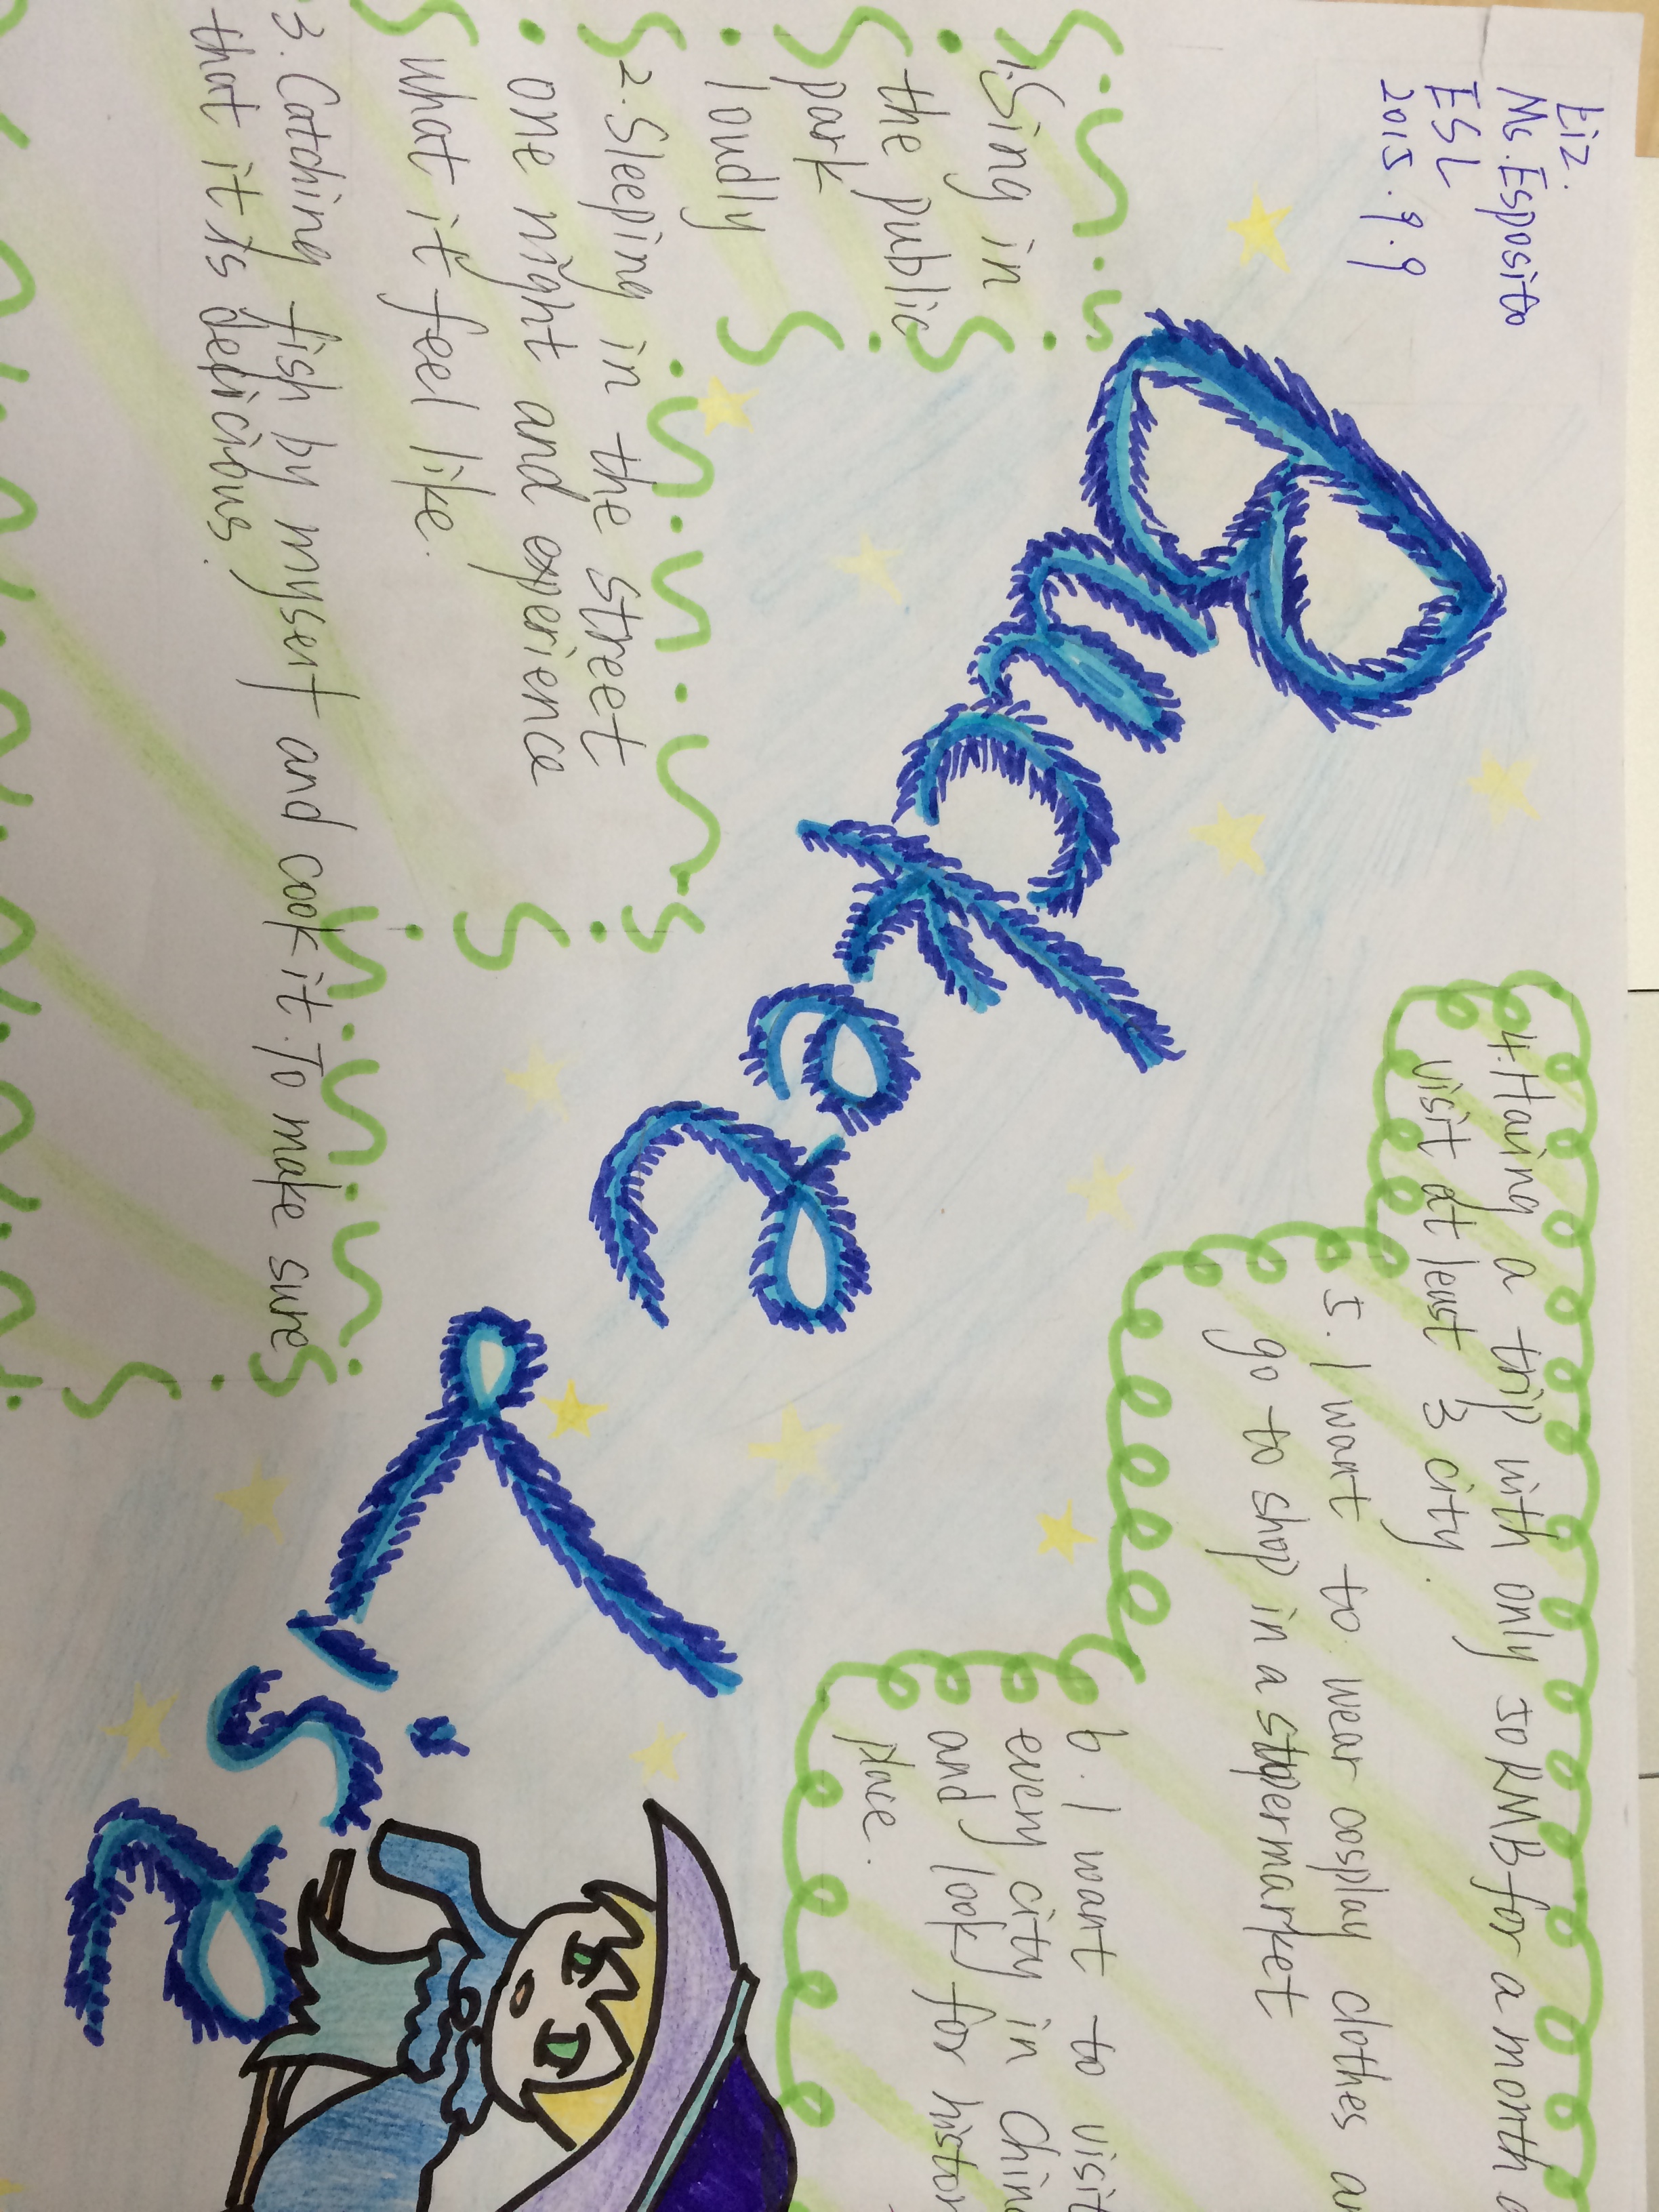 Liz.
Ms. Esposito
ESL
2015.9.9
Bucket List
1.Sing in
the public
park
loudly
2.Sleeping in the street
one night and experience
what it feel like.
3.Catching fish by myself and cook it. To make sure
that it is delicious.
4.Having a trip with only 50 RMB for a month a
visit at least 3 city.
5.I want to wear cosplay clothes an
go to shop in a supermarket
6.I want to visit
every city in Chin
and look for histor
place.